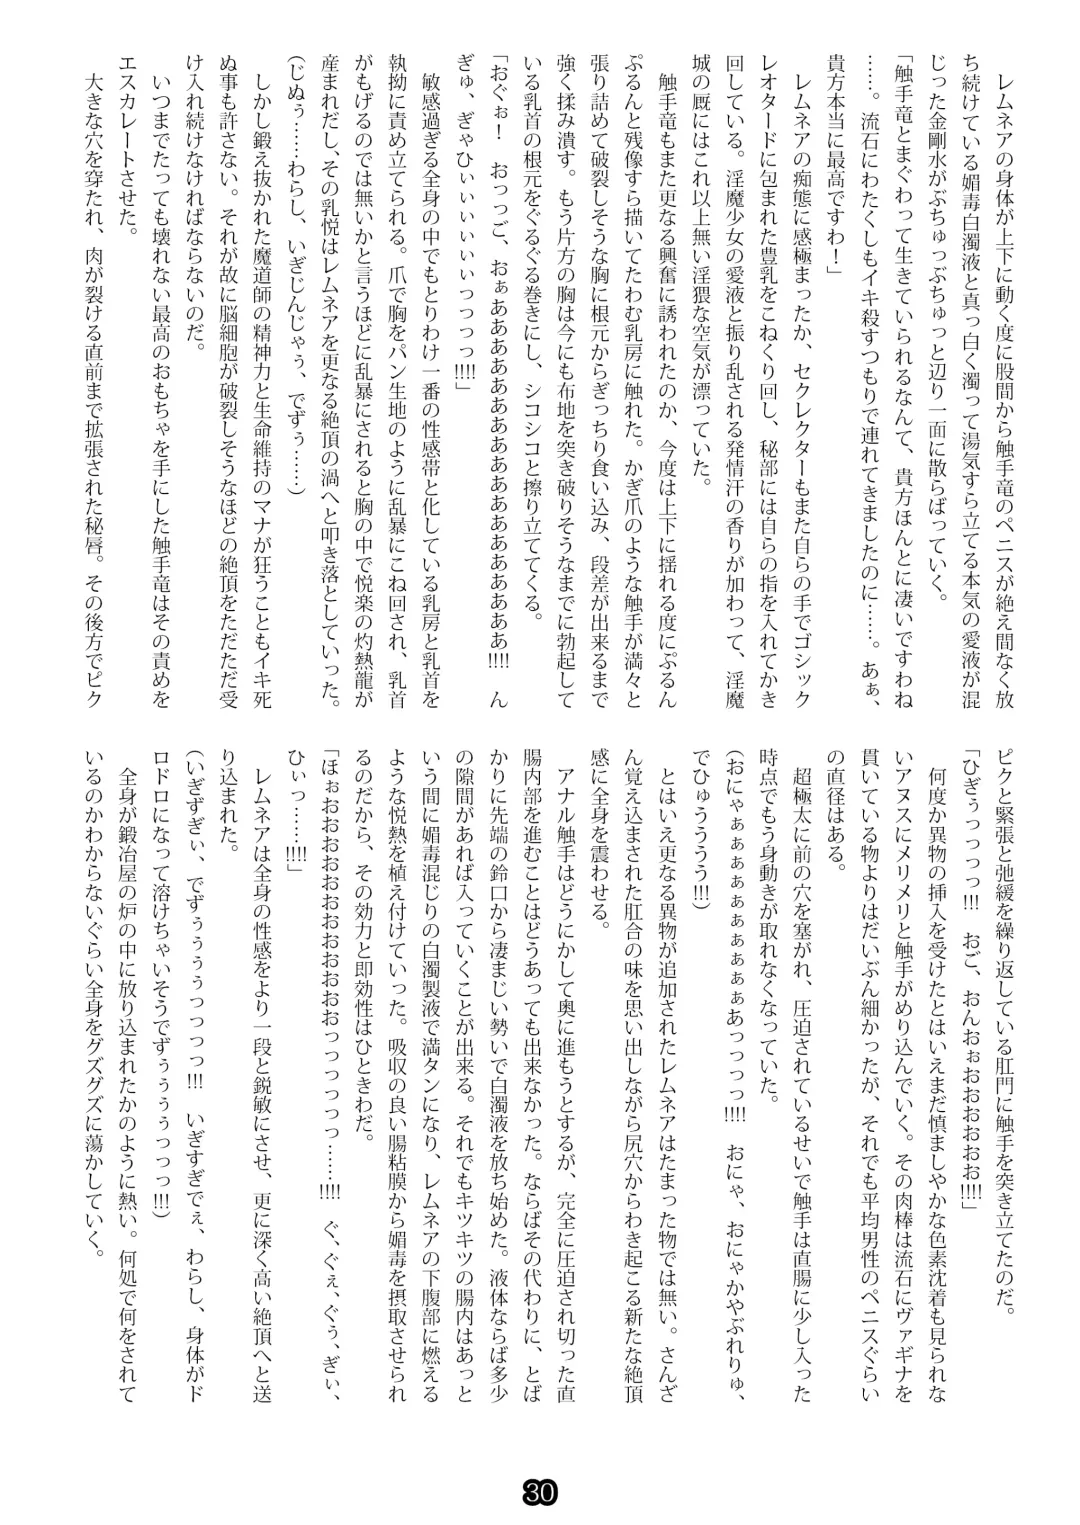 レムネアの身体が上下に動く度に股間から触手竜のペニスが絶え間なく放
ち続けている媚毒白濁液と真っ白く濁って湯気すら立てる本気の愛液が混
じった金剛水がぶちゅっぶちゅっと辺り一面に散らばっていく。
「触手竜とまぐわって生きていられるなんて、貴方ほんとに凄いですわね
……。流石にわたくしもイキ殺すつもりで連れてきましたのに……。あぁ、
貴方本当に最高ですわ！」
レムネアの痴態に感極まったか、セクレクターもまた自らの手でゴシック
レオタードに包まれた豊乳をこねくり回し、秘部には自らの指を入れてかき
回している。淫魔少女の愛液と振り乱される発情汗の香りが加わって、淫魔
城の厩にはこれ以上無い淫猥な空気が漂っていた。
触手竜もまた更なる興奮に誘われたのか、今度は上下に揺れる度にぷるん
ぷるんと残像すら描いてたわむ乳房に触れた。かぎ爪のような触手が満々と
張り詰めて破裂しそうな胸に根元からぎっちり食い込み、段差が出来るまで
強く揉み潰す。もう片方の胸は今にも布地を突き破りそうなまでに勃起して
いる乳首の根元をぐるぐる巻きにし、シコシコと擦り立ててくる。
「おぐぉ！　おっっご、おぁああああああああああああああああああ!!!!　ん
ぎゅ、ぎゃひぃぃぃぃぃぃっっっっ!!!!」
敏感過ぎる全身の中でもとりわけ一番の性感帯と化している乳房と乳首を
執拗に責め立てられる。爪で胸をパン生地のように乱暴にこね回され、乳首
がもげるのでは無いかと言うほどに乱暴にされると胸の中で悦楽の灼熱龍が
産まれだし、その乳悦はレムネアを更なる絶頂の渦へと叩き落としていった。
（じぬぅ……わらし、いぎじんじゃぅ、でずぅ……）
しかし鍛え抜かれた魔道師の精神力と生命維持のマナが狂うこともイキ死
ぬ事も許さない。それが故に脳細胞が破裂しそうなほどの絶頂をただただ受
け入れ続けなければならないのだ。
いつまでたっても壊れない最高のおもちゃを手にした触手竜はその責めを
エスカレートさせた。
大きな穴を穿たれ、肉が裂ける直前まで拡張された秘唇。その後方でピク
ピクと緊張と弛緩を繰り返している肛門に触手を突き立てたのだ。
「ひぎぅっっっっ!!!　おご、おんおぉおおおおおお!!!!」
何度か異物の挿入を受けたとはいえまだ慎ましやかな色素沈着も見られな
いアヌスにメリメリと触手がめり込んでいく。その肉棒は流石にヴァギナを
貫いている物よりはだいぶん細かったが、それでも平均男性のペニスぐらい
の直径はある。
超極太に前の穴を塞がれ、圧迫されているせいで触手は直腸に少し入った
時点でもう身動きが取れなくなっていた。
（おにゃぁぁぁぁぁぁぁぁぁぁあっっっっ!!!!　おにゃ、おにゃかやぶれりゅ、
でひゅうううう!!!）
とはいえ更なる異物が追加されたレムネアはたまった物では無い。さんざ
ん覚え込まされた肛合の味を思い出しながら尻穴からわき起こる新たな絶頂
感に全身を震わせる。
アナル触手はどうにかして奥に進もうとするが、完全に圧迫され切った直
腸内部を進むことはどうあっても出来なかった。ならばその代わりに、とば
かりに先端の鈴口から凄まじい勢いで白濁液を放ち始めた。液体ならば多少
の隙間があれば入っていくことが出来る。それでもキツキツの腸内はあっと
いう間に媚毒混じりの白濁製液で満タンになり、レムネアの下腹部に燃える
ような悦熱を植え付けていった。吸収の良い腸粘膜から媚毒を摂取させられ
るのだから、その効力と即効性はひときわだ。
「ほぉおおおおおおおおおおおおおっっっっっっ……!!!!　ぐ、ぐぇ、ぐぅ、ぎぃ、
ひぃっ……!!!!」
レムネアは全身の性感をより一段と鋭敏にさせ、更に深く高い絶頂へと送
り込まれた。
（いぎずぎぃ、でずぅぅぅぅっっっっ!!!　いぎすぎでぇ、わらし、身体がド
ロドロになって溶けちゃいそうでずぅぅぅぅっっっ!!!）
全身が鍛冶屋の炉の中に放り込まれたかのように熱い。何処で何をされて
いるのかわからないぐらい全身をグズグズに蕩かしていく。
30